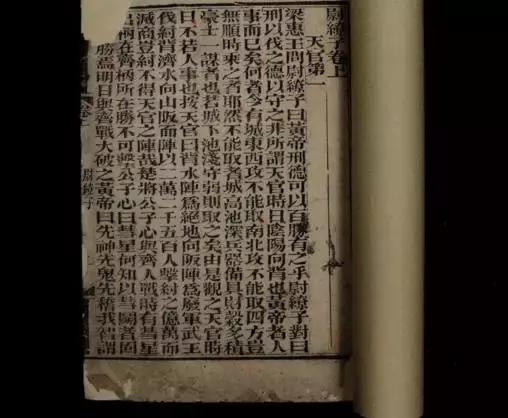 尉繚子卷上
天官第一
梁惠王問尉繚子曰黃帝刑德可以百勝有之乎尉繚子對曰
刑以伐之德以守之非所謂天官時日陰陽向背也黃帝者人
事而已矣何者今有城東西攻不能取南北攻不能取四方豈
無順時乘之者耶然不能取者城高池深兵器備具財穀多積
豪士一謀者也若城下池淺守弱則取之矣由是觀之天官時
日不若人事也按天官曰背水陣爲絕地向阪陣爲廢軍武王
伐紂背濟水向山阪而陣以二萬二千五百人擊紂之億萬而
滅商豈紂不得天官之陣哉楚將公子心與齊人戰時有彗星
出柄在齊柄所在勝不可擊公子心曰彗星何知以彗鬭者固
勝焉明日與齊戰大破之黃帝曰先神先鬼先稽我智謂
尉繚子